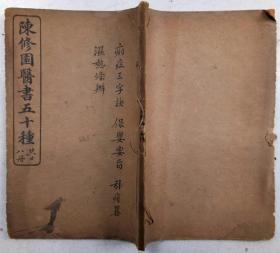 陳修園醫書五十種
共廿
八册
痢症三字訣 保嬰要旨
濕熱條辨